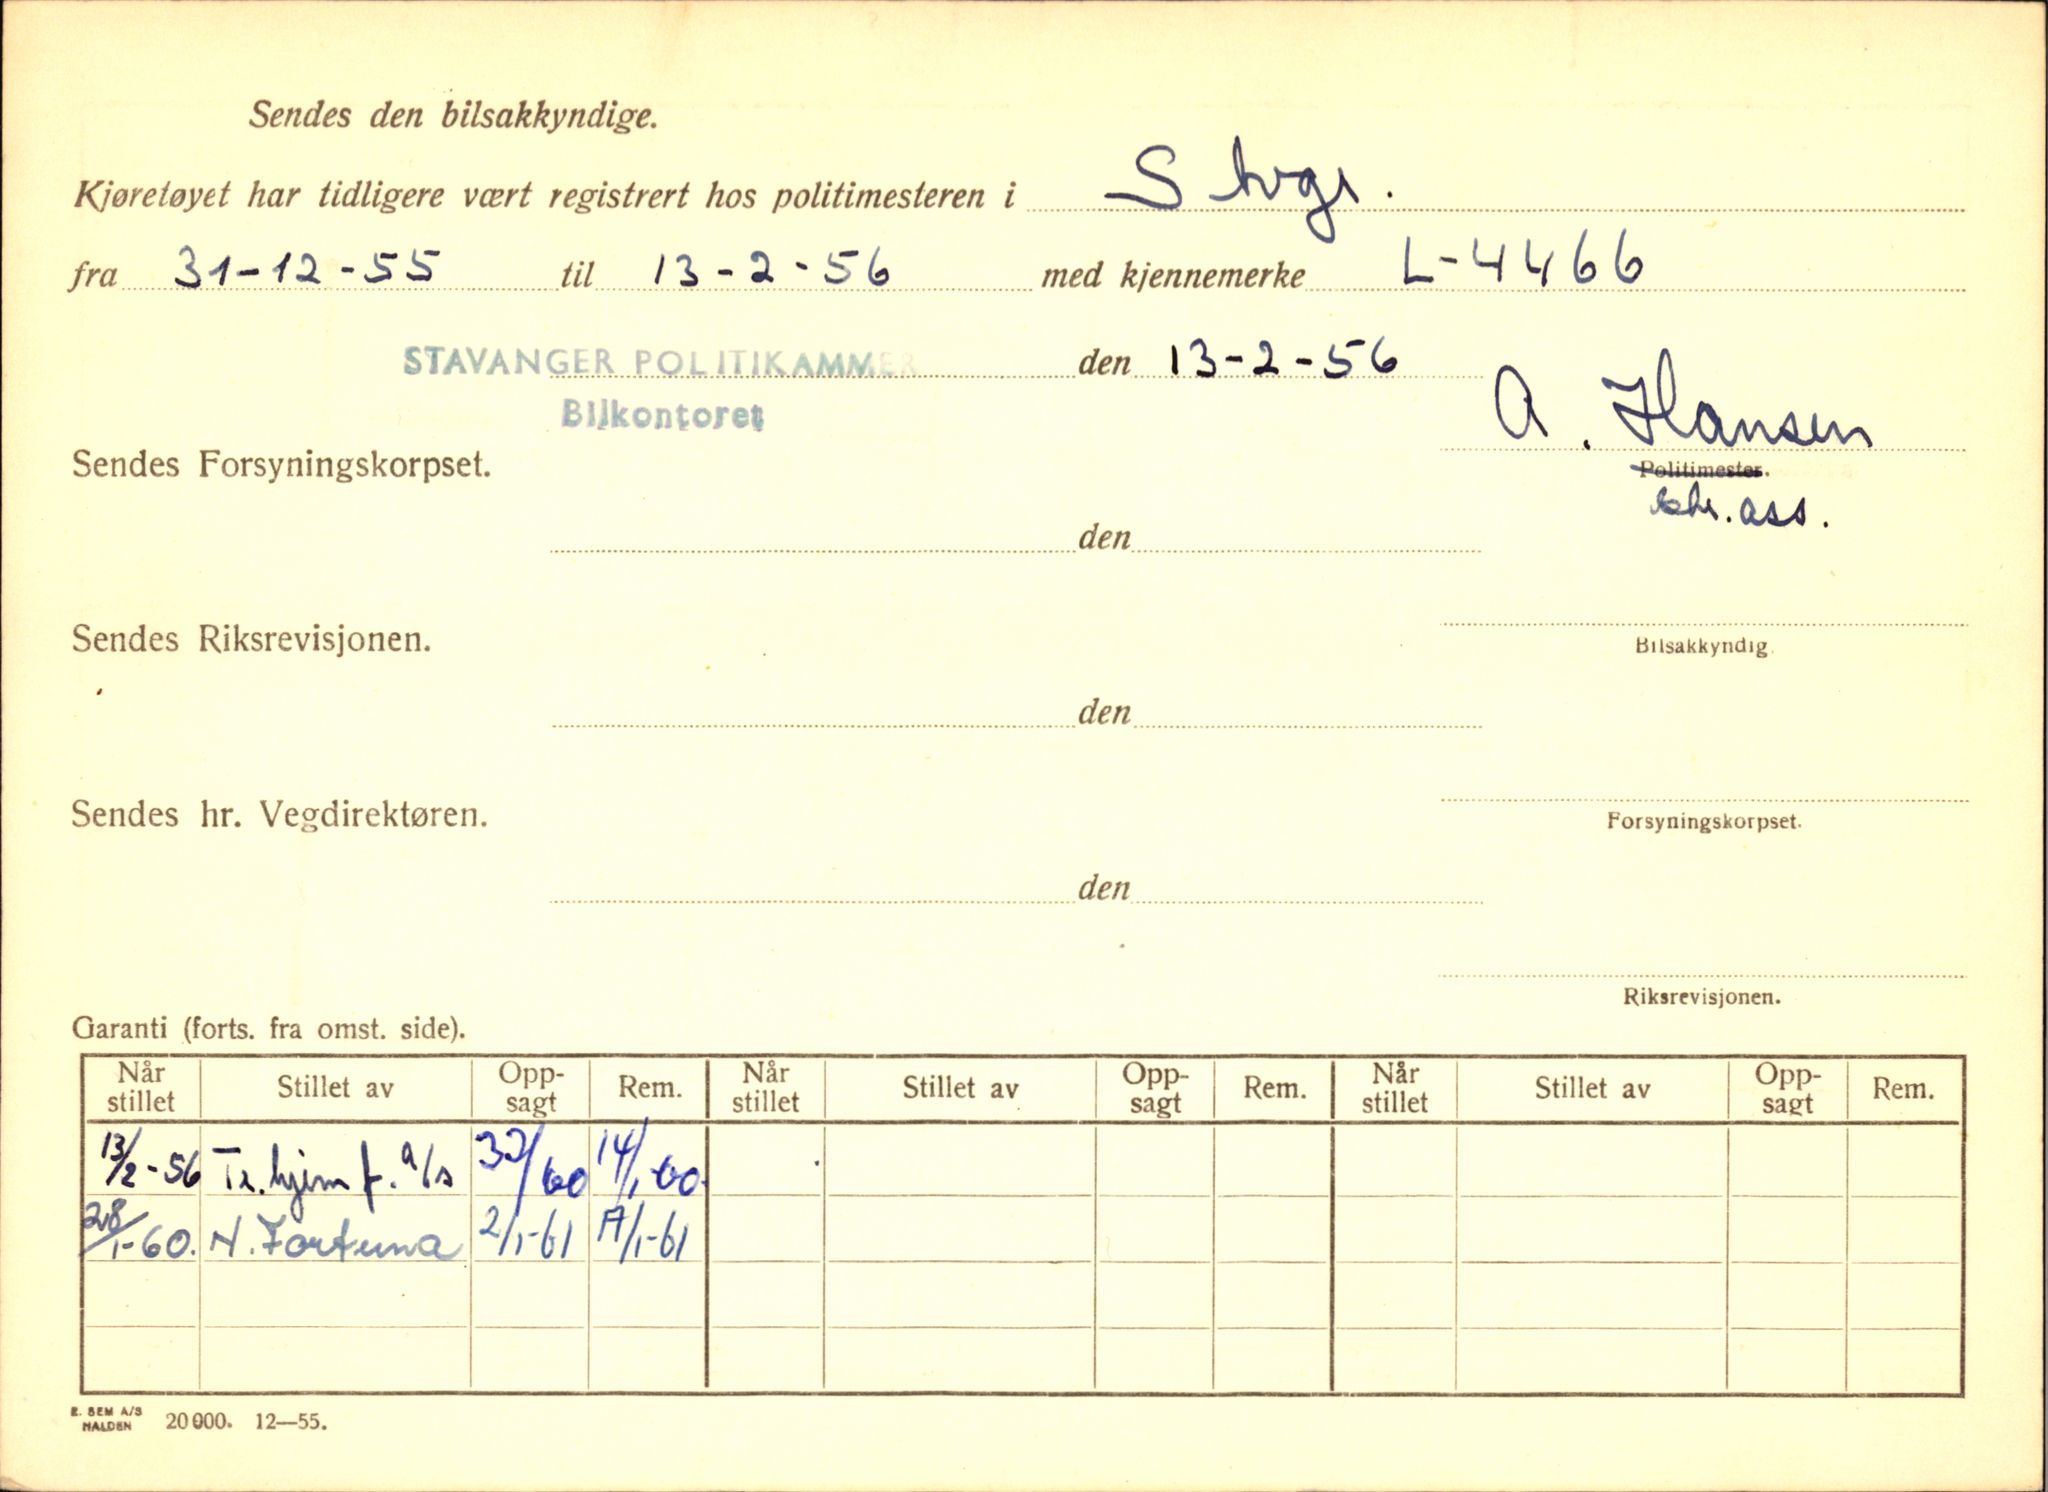 Sendes den bilsakkyndige.
Kjøretøyet har tidligere vært registrert hos politimesteren i Stvgr.
fra 31-12-55 til 13-2-56 med kjennemerke L-4466
STAVANGER POLITIKAMMER den 13-2-56
Bilkontoret
A. Hansen
Politimester.
ass.
Sendes Forsyningskorpset.
den
Bilsakkyndig.
Sendes Riksrevisjonen.
den
Forsyningskorpset.
Sendes hr. Vegdirektøren.
den
Riksrevisjonen.
Garanti (forts. fra omst. side).
Når stillet Stillet av Opp-sagt Rem. Når stillet Stillet av Opp-sagt Rem. Når stillet Stillet av Opp-sagt Rem.
13/2-56 Tr.hjem f. a/s /60 14/1-60.
28/1-60. N. Fortuna 2/1-61 17/1-61
E. SEM A/S
HALDEN 20000. 12—55.